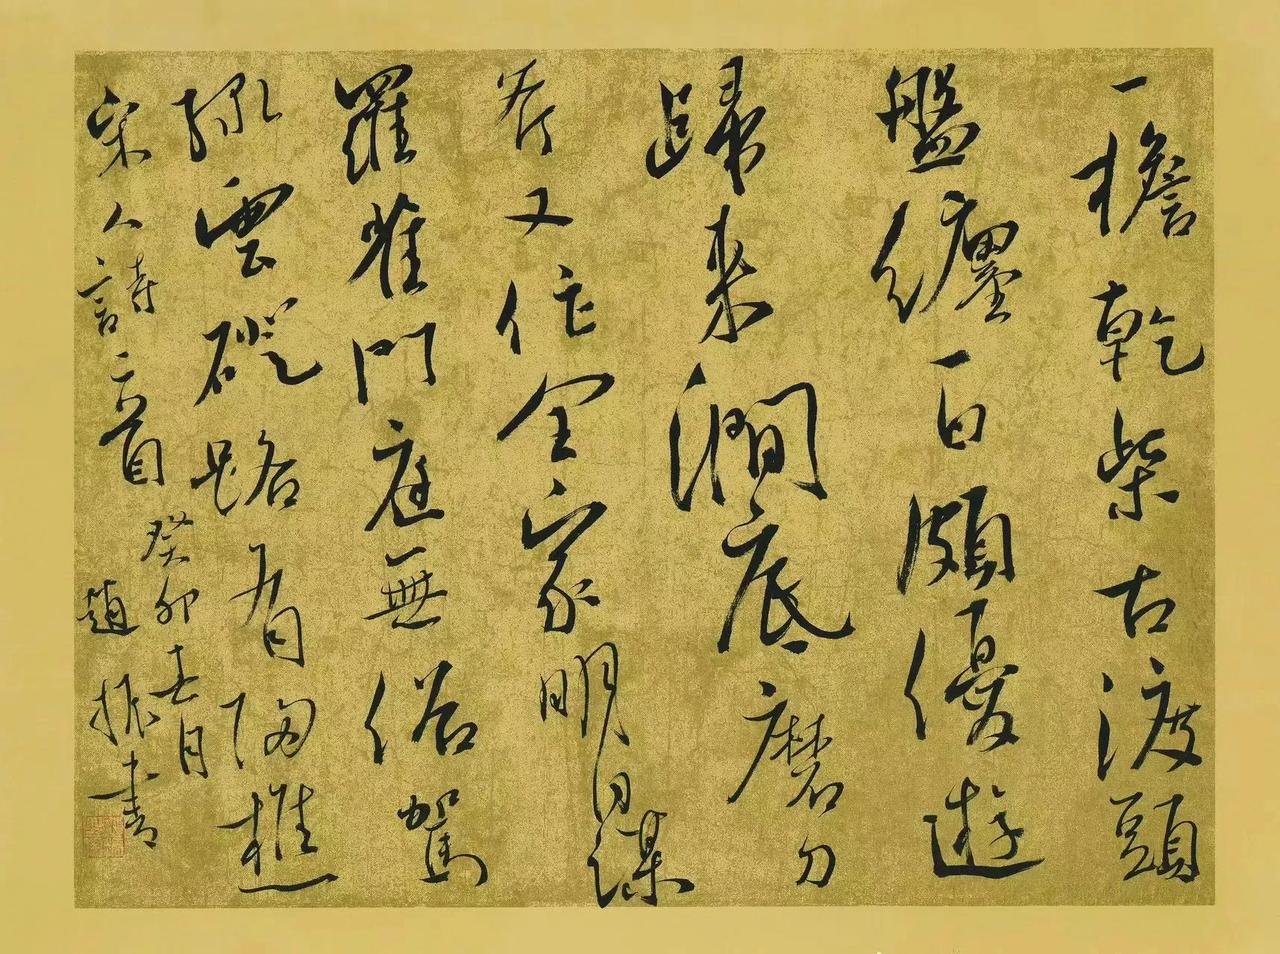 一擔乾柴古渡頭
盤纏一日頗優遊
歸來澗底磨刀
斧又作全家明日謀
羅雀門庭無俗駕
緣雲磴路有樵
宋人詩二首
癸卯春月
趙振書